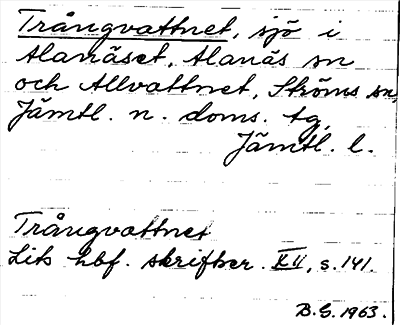 Trångvattnet, sjö i
Alanäset, Alanäs sn
och Allvattnet, Ströms sn,
Jämtl. n. doms. tg,
Jämtl. l.
Trångvattnet
hbf. skrifter. XII, s. 141.
B.G. 1963.